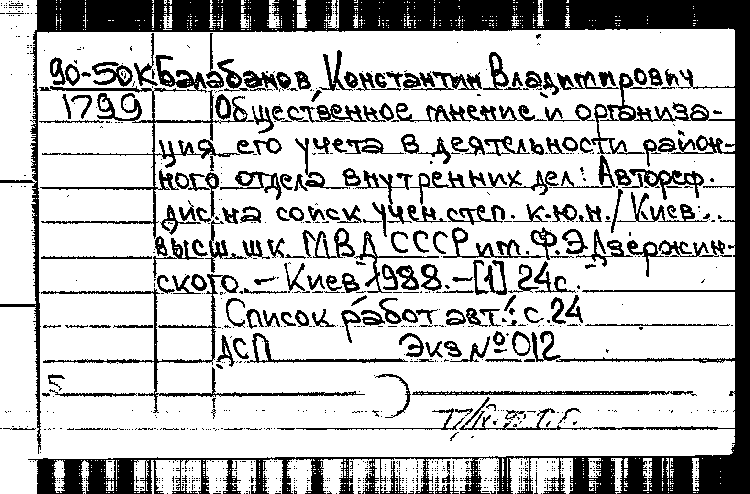 90-50К Балабанов Константин Владимирович
1799 Общественное мнение и организа-
ция его учета в деятельности район-
ного отдела внутренних дел: Автореф.
дис. на соиск. учен. степ. к.ю.н. / Киев.
высш. шк. МВД СССР им. Ф.Э. Дзержин-
ского. - Киев 1988. - [1] 24 с.
Список работ авт.: с. 24
ДСП Экз № 012
5